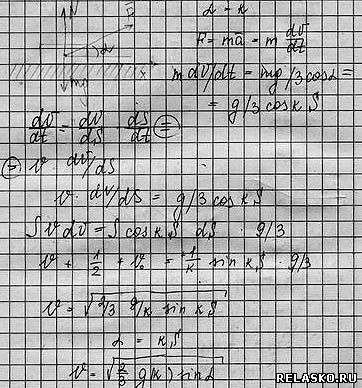 N
F
α
x
mg
α - k
F = ma̅ = m dv̅/dt
m dV/dt = mg/3 cosα =
= g/3 cos k S
dv/dt = dv/dS · dS/dt =
= v · dv/dS
v · dv/dS = g/3 cos k S
∫ v dv = ∫ cos k S · dS · g/3
v + 1/2 + v₀ = +1/k sin k S · g/3
v = √2/3 g/k sin k S
α = k S
v = √2/3 g(k) sin α
RELASKO.RU